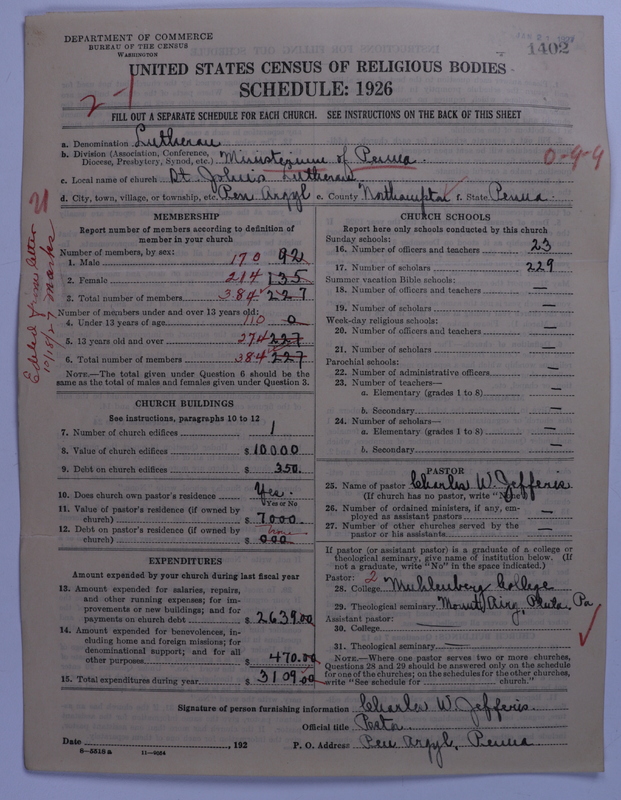 DEPARTMENT OF COMMERCE
BUREAU OF THE CENSUS
WASHINGTON
1402
UNITED STATES CENSUS OF RELIGIOUS BODIES
SCHEDULE: 1926
2-1
FILL OUT A SEPARATE SCHEDULE FOR EACH CHURCH. SEE INSTRUCTIONS ON THE BACK OF THIS SHEET
a. Denomination Lutheran
b. Division (Association, Conference, Diocese, Presbytery, Synod, etc.) Ministerium of Penna.
0-9-9
c. Local name of church St. John's Lutheran
d. City, town, village, or township, etc. Pen Argyl e. County Northampton f. State Penna.
Edited from letter 10/18/27
MEMBERSHIP
Report number of members according to definition of
member in your church
Number of members, by sex:
1. Male 170 92
2. Female 214 135
3. Total number of members 384 227
Number of members under and over 13 years old:
4. Under 13 years of age 110 0
5. 13 years old and over 274 227
6. Total number of members 384 227
NOTE.—The total given under Question 6 should be the
same as the total of males and females given under Question 3.
CHURCH BUILDINGS
See instructions, paragraphs 10 to 12
7. Number of church edifices 1
8. Value of church edifices $ 10000
9. Debt on church edifices $ 350.
10. Does church own pastor's residence Yes.
Yes or No
11. Value of pastor's residence (if owned by
church) $ 7000.
12. Debt on pastor's residence (if owned by
church) $ 000 none
EXPENDITURES
Amount expended by your church during last fiscal year
13. Amount expended for salaries, repairs,
and other running expenses; for im-
provements or new buildings; and for
payments on church debt $ 2639.00
14. Amount expended for benevolences, in-
cluding home and foreign missions; for
denominational support; and for all
other purposes $ 470.00
15. Total expenditures during year $ 3109.00
CHURCH SCHOOLS
Report here only schools conducted by this church
Sunday schools:
16. Number of officers and teachers 23
17. Number of scholars 229
Summer vacation Bible schools:
18. Number of officers and teachers —
19. Number of scholars —
Week-day religious schools:
20. Number of officers and teachers —
21. Number of scholars —
Parochial schools:
22. Number of administrative officers —
23. Number of teachers—
a. Elementary (grades 1 to 8) —
b. Secondary —
24. Number of scholars—
a. Elementary (grades 1 to 8) —
b. Secondary —
PASTOR
25. Name of pastor Charles W. Jefferis
(If church has no pastor, write "None")
26. Number of ordained ministers, if any, em-
ployed as assistant pastors —
27. Number of other churches served by the
pastor or his assistants —
If pastor (or assistant pastor) is a graduate of a college or
theological seminary, give name of institution below. (If
not a graduate, write "No" in the space indicated.)
Pastor: 2
28. College Muhlenberg College
29. Theological seminary Mount Airy, Phila., Pa
Assistant pastor:
30. College
31. Theological seminary
NOTE.—Where one pastor serves two or more churches,
Questions 28 and 29 should be answered only on the schedule
for one of the churches; on the schedules for the other churches,
write "See schedule for church."
Signature of person furnishing information Charles W. Jefferis.
Official title Pastor
Date , 192 P. O. Address Pen Argyl, Penna
8—5518a 11—9504